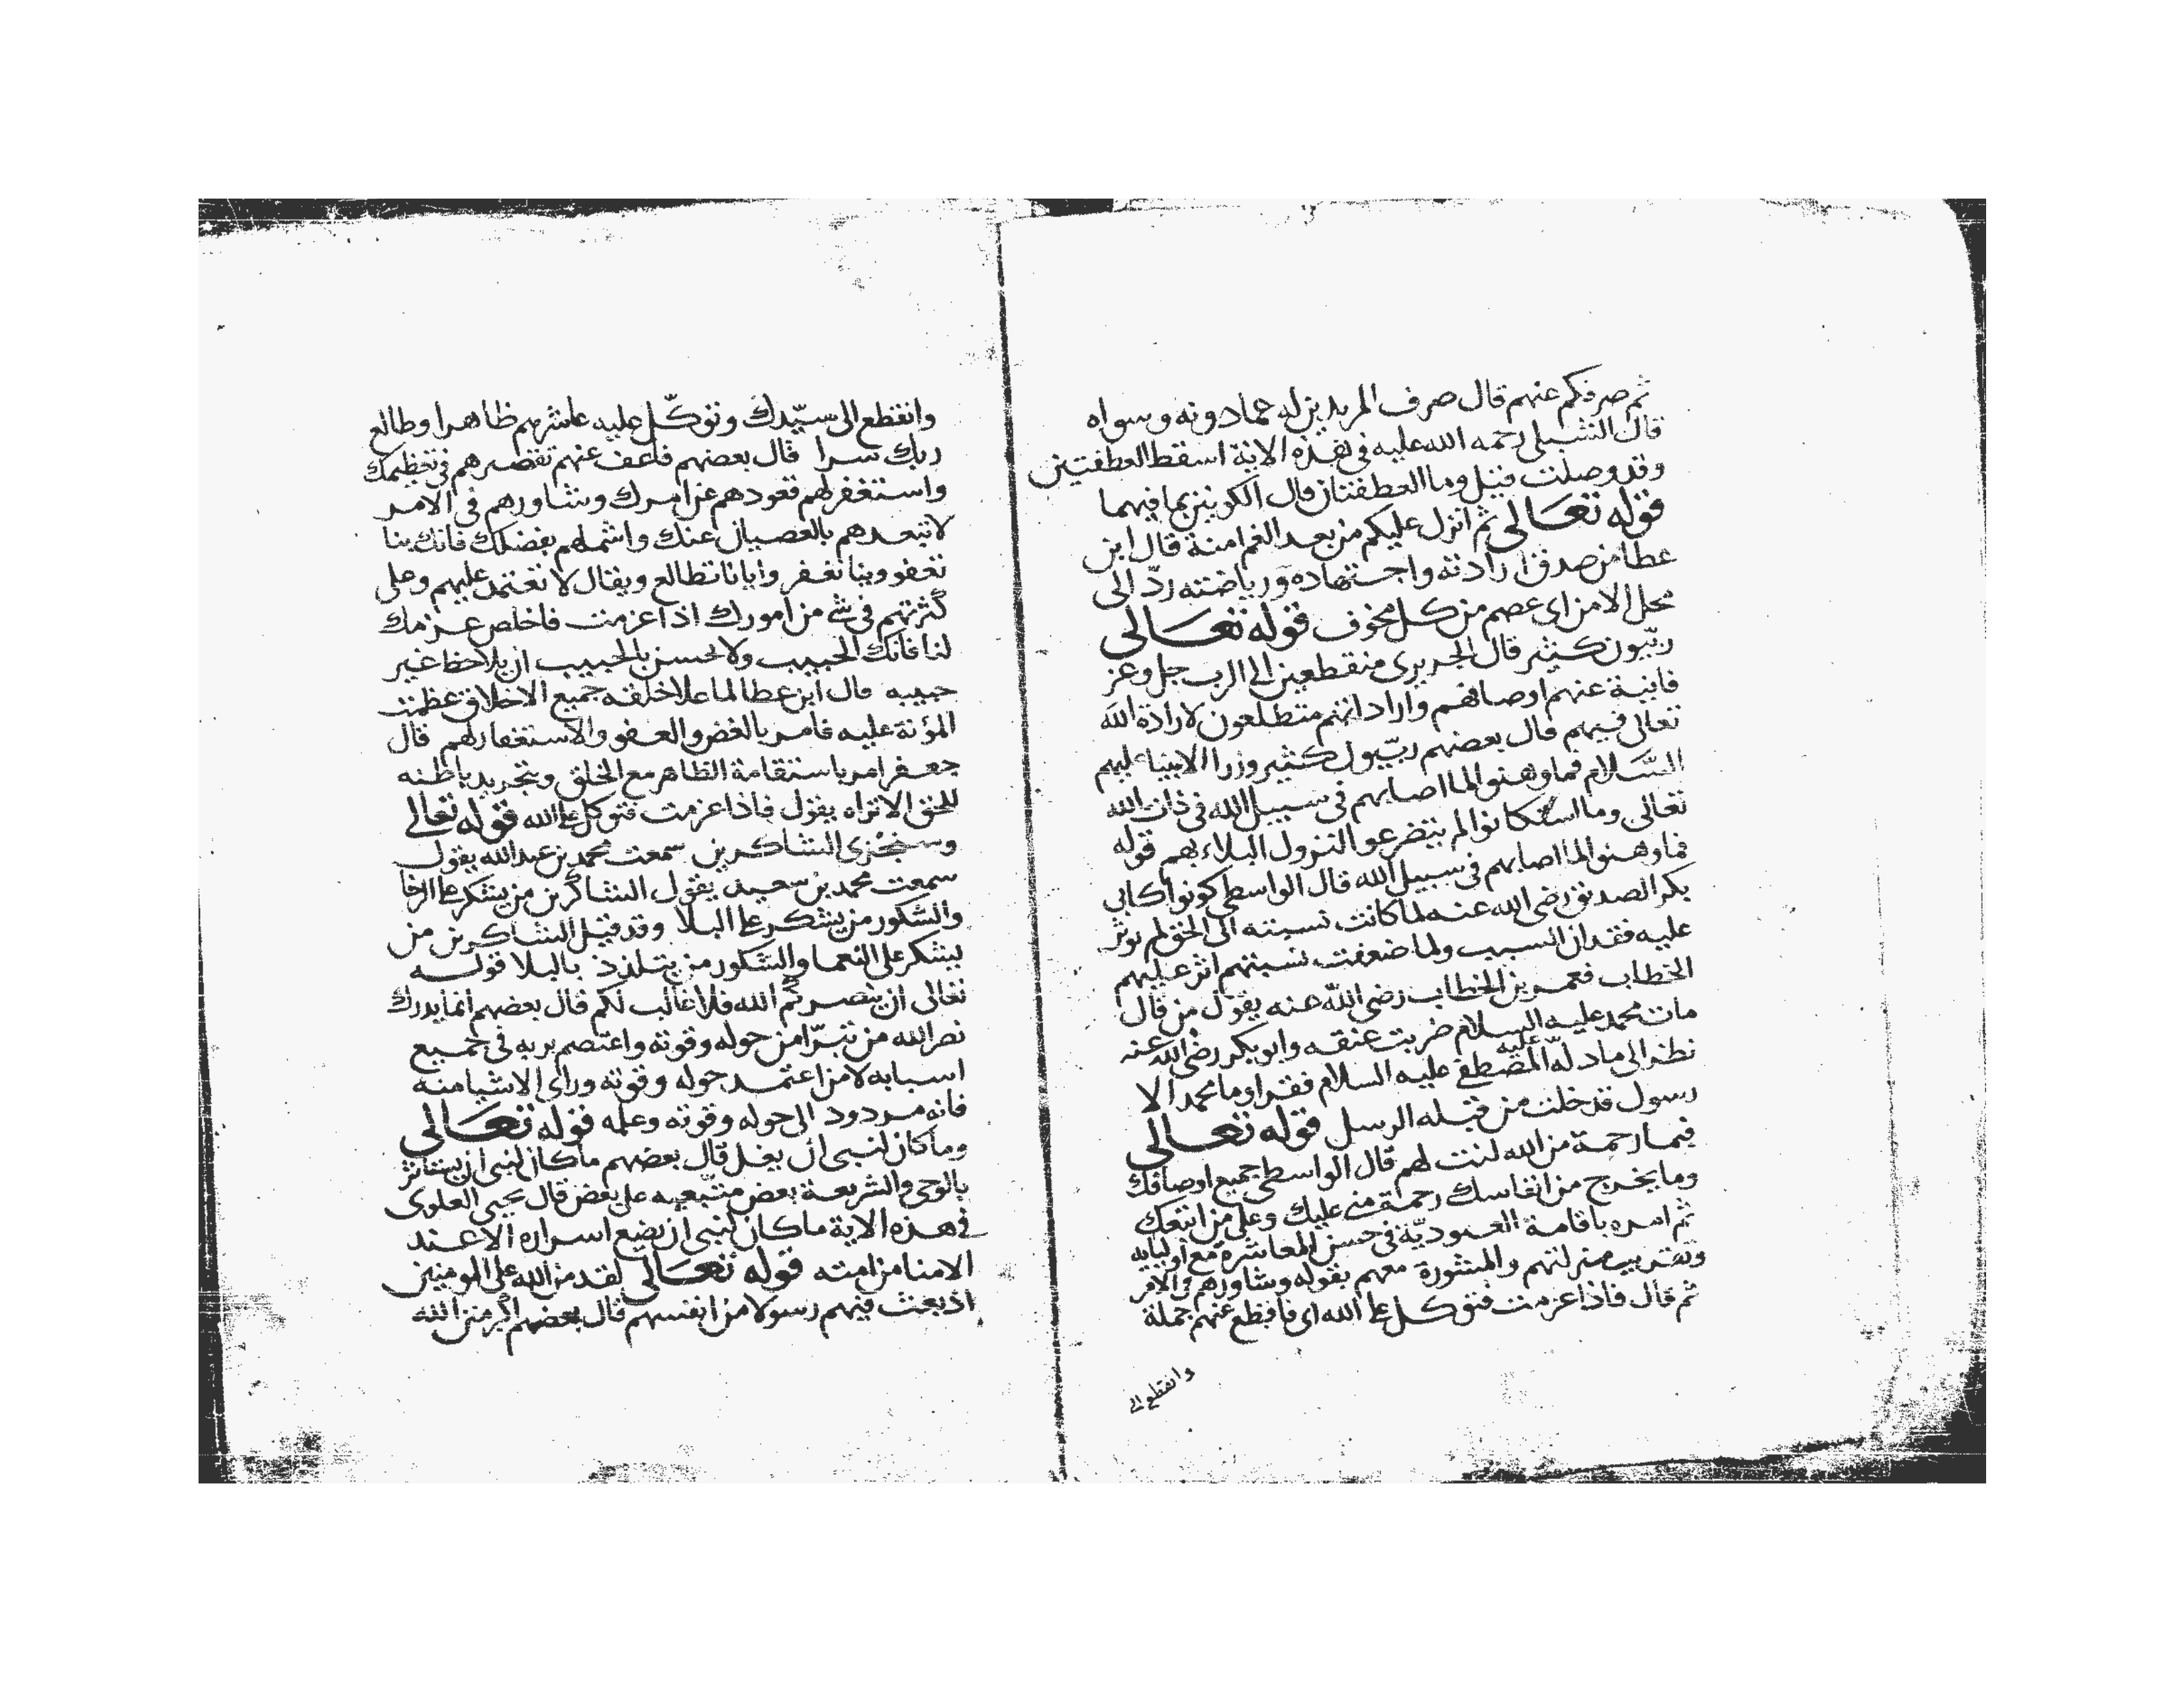 ثم صرفكم عنهم قال صرف المريدين له عما دونه وسواه
قال الشبلي رحمه الله عليه في هذه الاية اسقط العطفتين
وقد وصلت قيل وما العطفتان قال الكونين بما فيهما
قوله تعالى ثم انزل عليكم من بعد الغم امنة قال ابن
عطا من صدق ارادته واجتهاده ورياضته ردّ الى
محل الامن اى عصم من كل مخوف قوله تعالى
ربّيون كثير قال الجريرى منقطعين الى الرب جل وعز
فانية عنهم اوصافهم واراد انهم متطلعون لارادة الله
تعالى فيهم قال بعضهم ربّيون كثير وزرا الانبيا عليهم
السّلام فما وهنوا لما اصابهم في سبيل الله في ذات الله
تعالى وما استكانوا لم يتضرعوا لنزول البلاء بهم قوله
فما وهنوا لما اصابهم في سبيل الله قال الواسطي كونوا كابى
بكر الصديق رضى الله عنه لما كانت نسبته الى الحق لم يوثر
عليه فقدان السبب ولما ضعفت نسبتهم اثر عليهم
الخطاب فعمر بن الخطاب رضى الله عنه يقول من قال
مات محمد عليه السلام ضربت عنقه وابو بكر رضى الله عنه
نظر الى ما دلّه عليه المصطفى عليه السلام فقرا وما محمد الا
رسول قد خلت من قبله الرسل قوله تعالى
فبما رحمة من الله لنت لهم قال الواسطي جميع اوصافك
وما يخرج من انفاسك رحمة منى عليك وعلى من اتبعك
ثم امره باقامة العبوديّة في حسن المعاشرة مع اوليايه
وتقريب منزلتهم والمشورة معهم بقوله وشاورهم في الامر
ثم قال فاذا عزمت فتوكل على الله اى فاقطع عنهم جملة
وانقطع الى
وانقطع الى سيّدك وتوكّل عليه عاشرهم ظاهرا وطالع
ربك سرا قال بعضهم فاعف عنهم تقصيرهم في تعظيمك
واستغفر لهم قعودهم عن امرك وشاورهم في الامر
لا تبعدهم بالعصيان عنك واشملهم بفضلك فانك بنا
تعفو وبنا تغفر وايانا تطالع ويقال لا تعتمد عليهم وعلى
كثرتهم في شى من امورك اذا عزمت فاخلص عزمك
لنا فانك الحبيب ولا يحسن بالحبيب ان يلاحظ غير
حبيبه قال ابن عطا لما علا خلقه جميع الاخلاق عظمت
المؤنة عليه فامر بالغض والعفو والاستغفار لهم قال
جعفر امر باستقامة الظاهر مع الخلق وبتجريد باطنه
للحق الا تراه يقول فاذا عزمت فتوكل على الله قوله تعالى
وسنجزى الشاكرين سمعت محمد بن عبد الله يقول
سمعت محمد بن سعيد يقول الشاكرين من يشكر على الرخا
والشكور من يشكر على البلا وقد قيل الشاكرين من
يشكر على النعما والشكور من يتلذذ بالبلا قوله
تعالى ان ينصركم الله فلا غالب لكم قال بعضهم انما يدرك
نصر الله من تبرّا من حوله وقوته واعتصم بربه في جميع
اسبابه لا من اعتمد حوله وقوته وراى الاشيا منه
فانه مردود الى حوله وقوته وعلمه قوله تعالى
وما كان لنبى ان يغل قال بعضهم ما كان لنبى ان يستاثر
بالوحى والشريعة بعض متّبعيه على بعض قال يحيى العلوى
في هذه الاية ما كان لنبى ان يضع اسراره الا عند
الامنا من امته قوله تعالى لقد من الله على المومنين
اذ بعث فيهم رسولا من انفسهم قال بعضهم اكبر منن الله